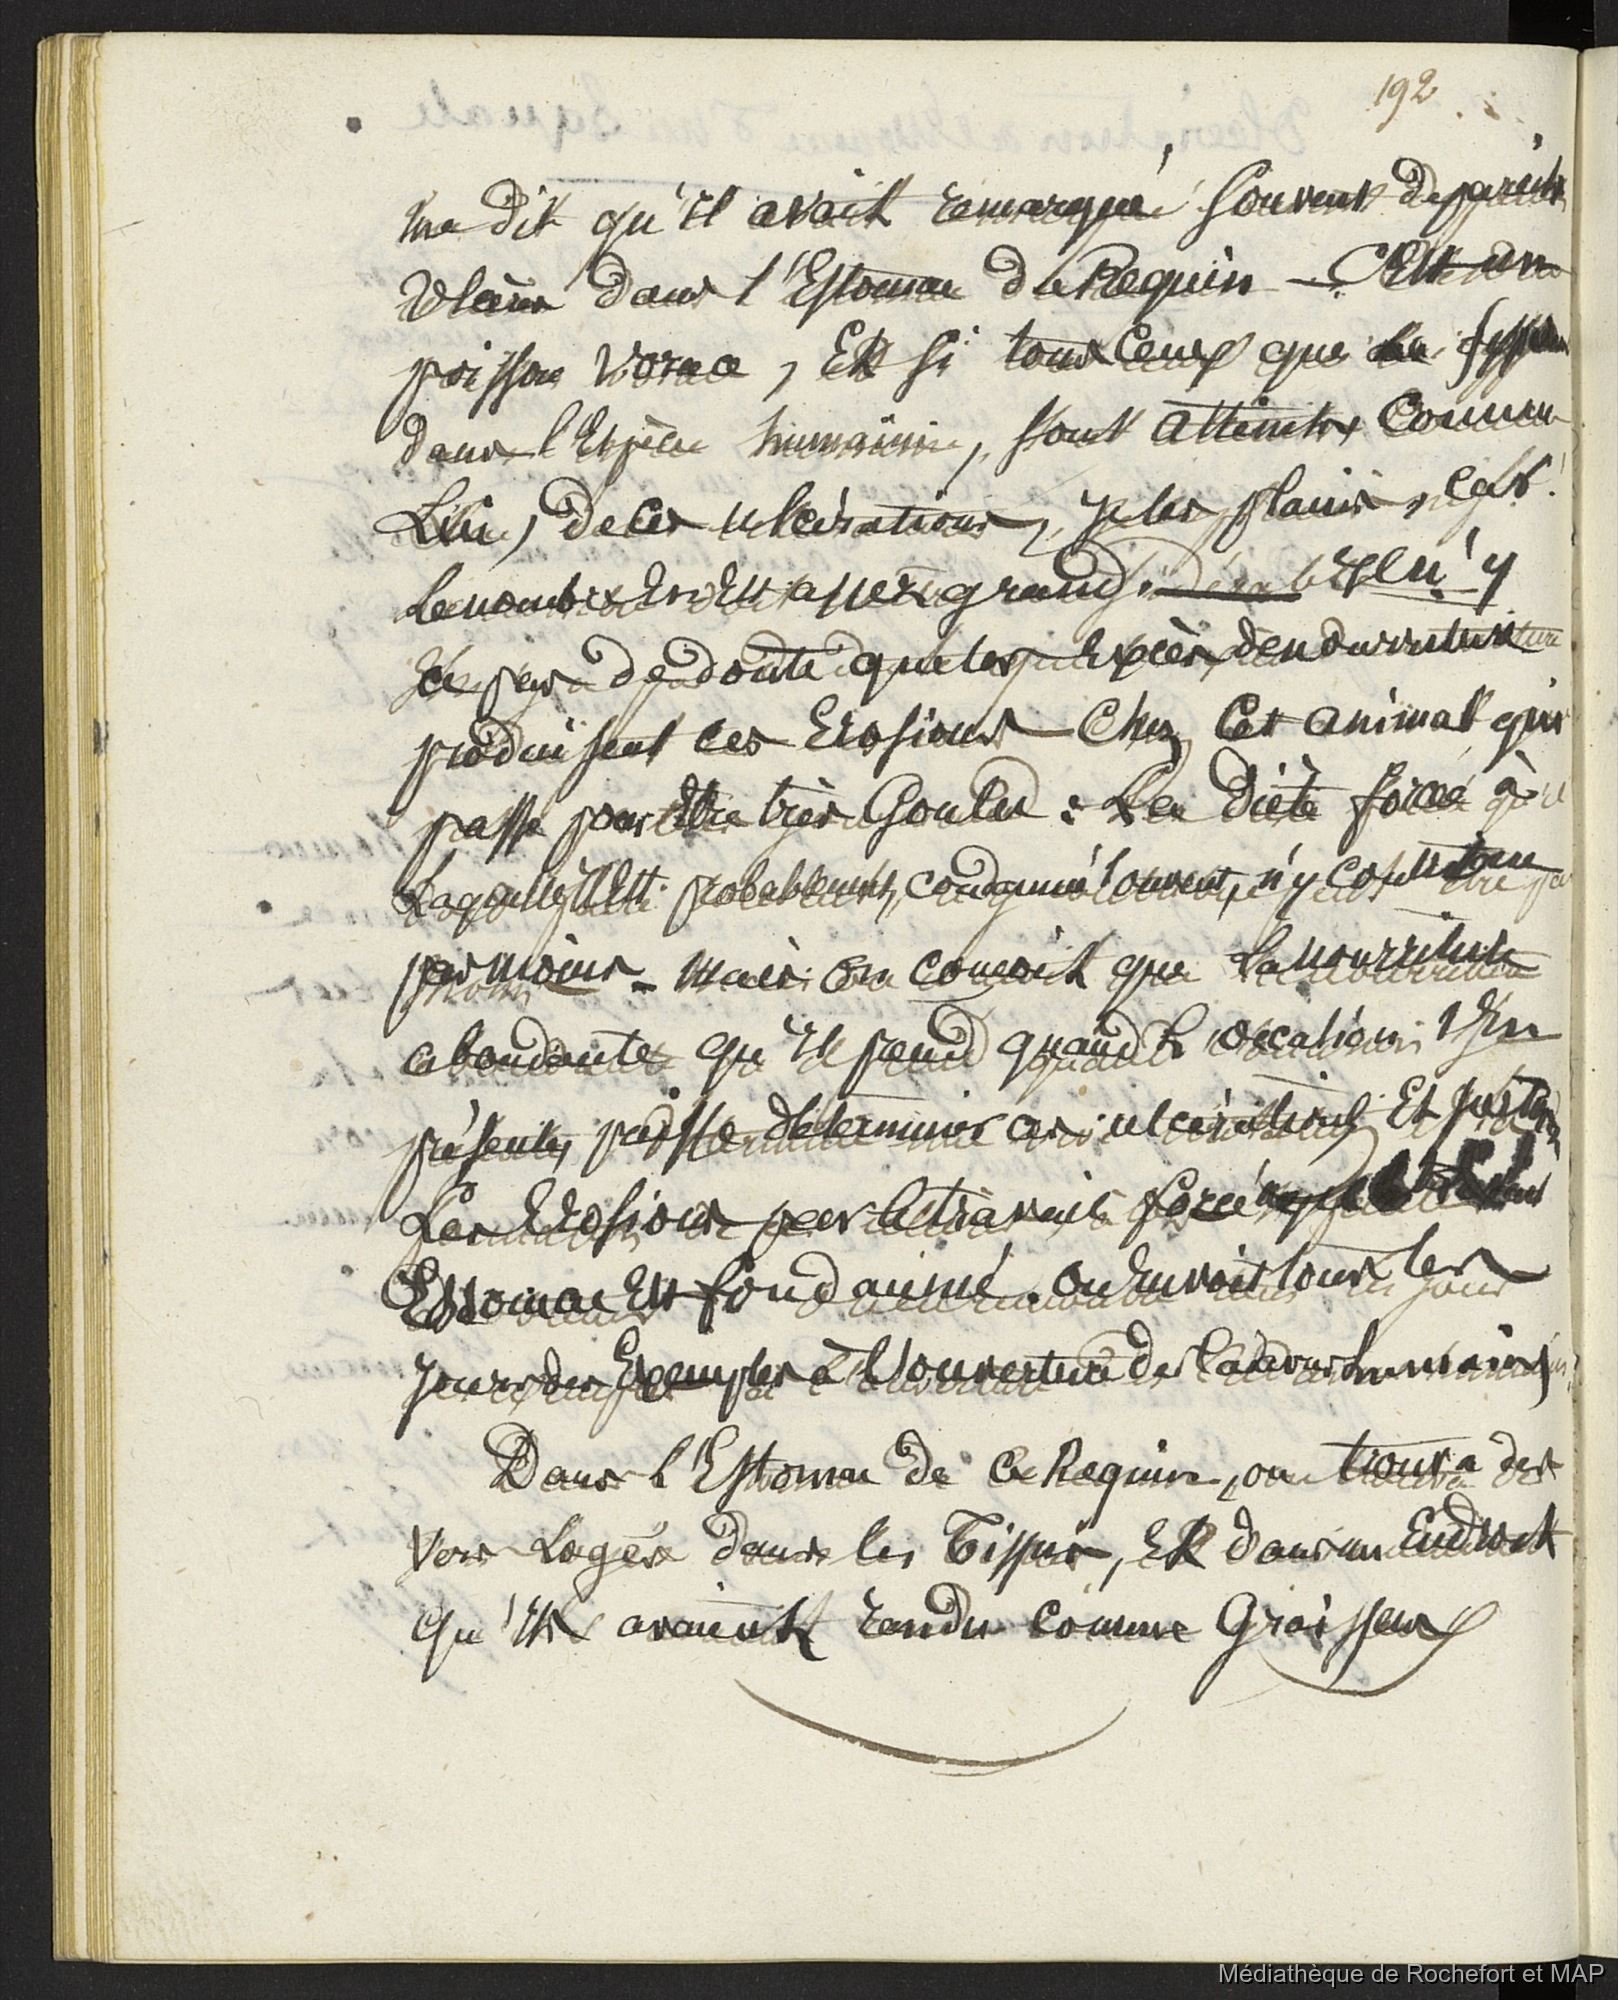 192
ma dit qu'il avait remarqué souvent de pareils
ulcères dans l'Estomac du Requin - C'Est un
poisson vorace, Et si tous ceux que le sont
dans l'Espèce humaine, sont atteints comme
Lui, de ces ulcérations, je les plains, car
Le nombre En Est assez grand. Il n'y
a pas de doute que les Excès de nourriture
produisent ces Erosions Chez Cet animal qui
passe pour Etre très Goulu : La diète forcée à
Laquelle il Est probablement condamné souvent, n'y contribue
pas moins - mais on conçoit que La nourriture
abondante qu'il prend quand L'occasion s'En
présente, puisse déterminer ces ulcérations Et
Les Erosions par le travail forcé
Estomac Est condamné. On En voit tous les
jours des Exemples à L'ouverture des Cadavres humains
Dans l'Estomac de ce Requin, on trouva des
vers Logés dans les Tissus, Et dans un Endroit
qu'ils avaient rendu comme Graisseux
Médiathèque de Rochefort et MAP